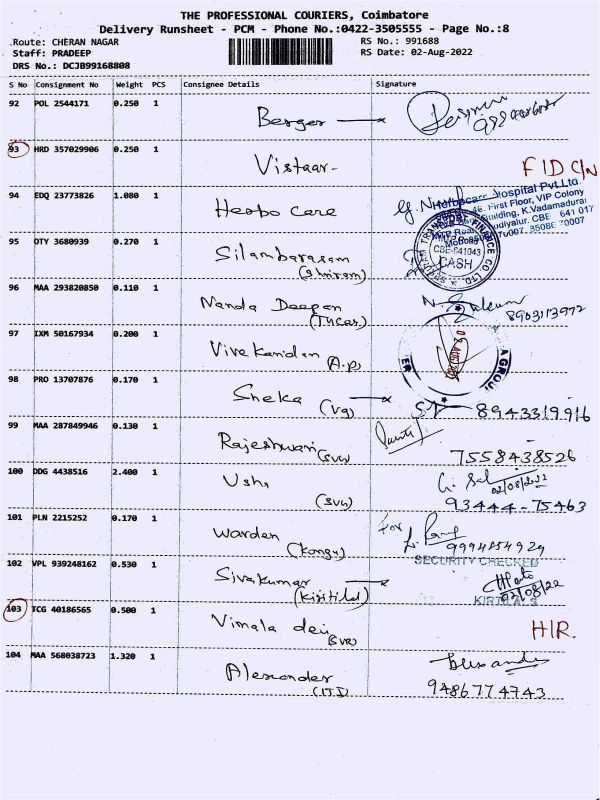 THE PROFESSIONAL COURIERS, Coimbatore
Delivery Runsheet - PCM - Phone No.:0422-3505555 - Page No.:8
Route: CHERAN NAGAR RS No.: 991688
Staff: PRADEEP RS Date: 02-Aug-2022
DRS No.: DCJB99168808
S No Consignment No Weight PCS Consignee Details Signature
92 POL 2544171 0.250 1 Berger
93 HRD 357029906 0.250 1 Vistaar
94 EDQ 23773826 1.080 1 Herbo care
Hospital Pvt.Ltd.
46, First Floor, VIP Colony
Building, K.Vadamadurai
CBE 641 017
95 OTY 3680939 0.270 1 Silambarasam
(Shriram)
TRANSPORT FINANCE CO LTD.
CBE-641043
CASH
96 MAA 293820850 0.110 1 Nanda Deepan
8903113972
97 IXM 50167934 0.200 1 Vivekandan
(A.P)
98 PRO 13707876 0.170 1 Sneka
(Vg) 8943319916
99 MAA 287849946 0.130 1 Rajeshwari
(SVG) 7558438526
100 DDG 4438516 2.400 1 Usha
(SVG) 02/08/2022
93444-75463
101 PLN 2215252 0.170 1 Warden For
(Kongu) 9994854929
SECURITY CHECKED
102 VPL 939248162 0.530 1 Sivakumar
02/08/22
103 TCG 40186565 0.500 1 Vimala devi
(SVR) H/R.
104 MAA 568038723 1.320 1 Alexander
(ITI) 9486774743